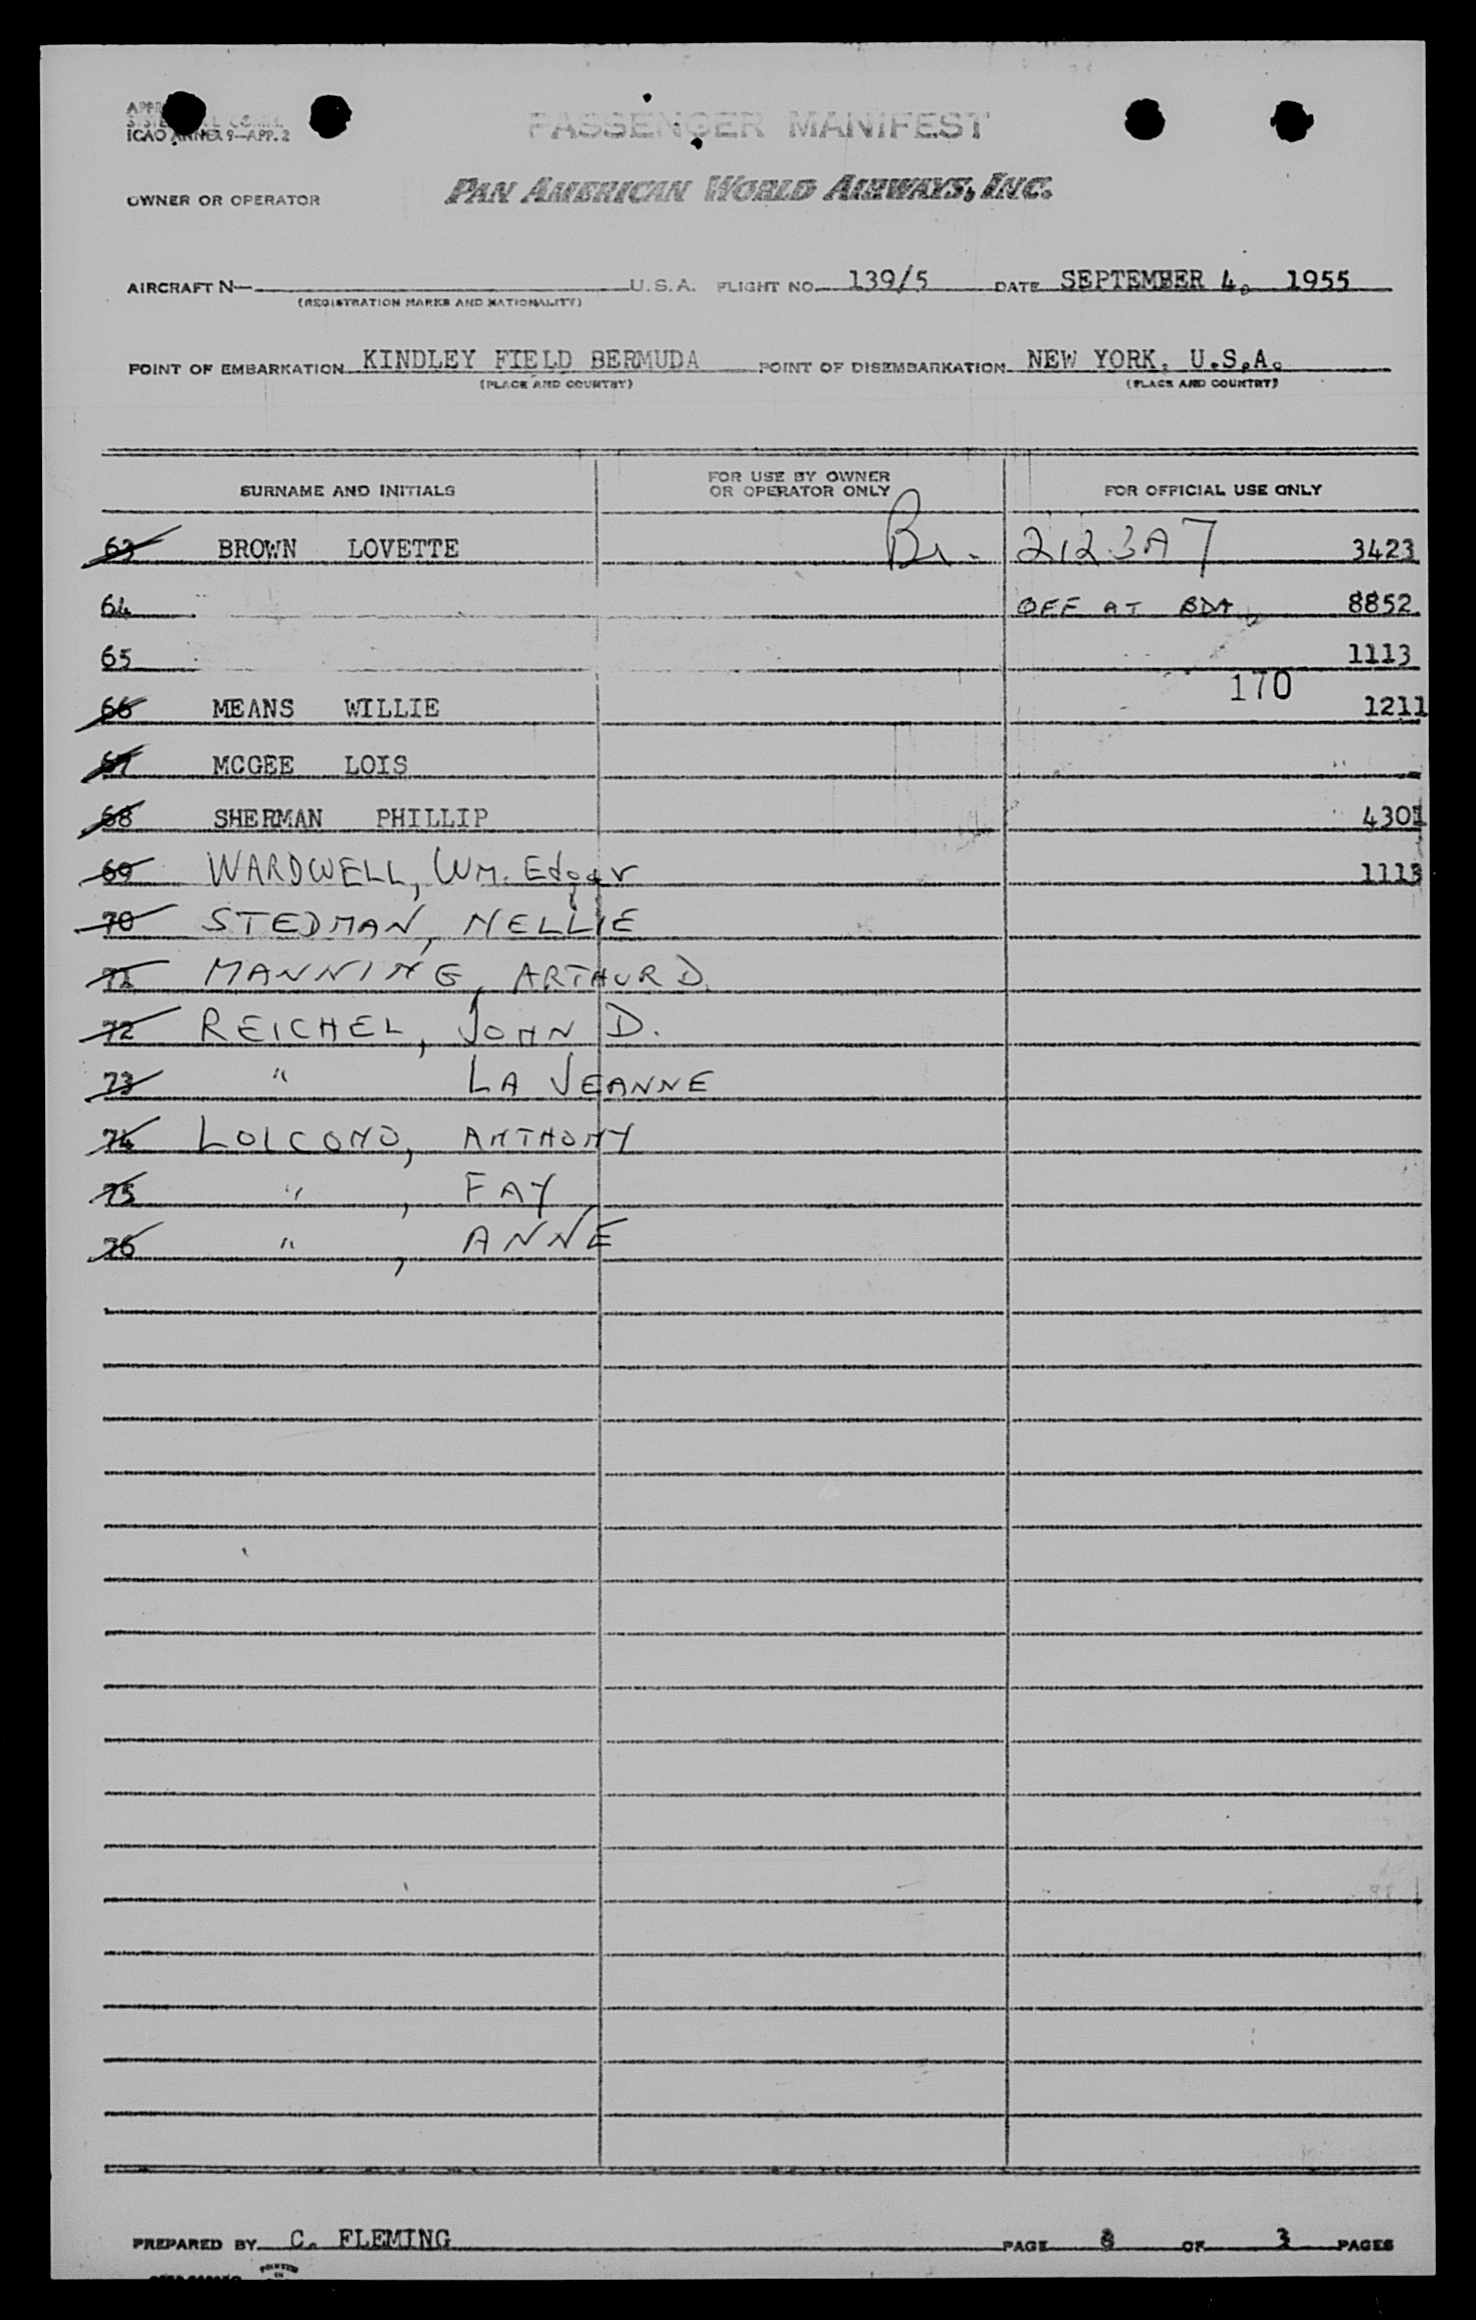 ICAO ANNEX 9—APP. 2
PASSENGER MANIFEST
OWNER OR OPERATOR PAN AMERICAN WORLD AIRWAYS, INC.
AIRCRAFT N— U.S.A. FLIGHT NO. 139/5 DATE SEPTEMBER 4, 1955
(REGISTRATION MARKS AND NATIONALITY)
POINT OF EMBARKATION KINDLEY FIELD BERMUDA POINT OF DISEMBARKATION NEW YORK, U.S.A.
(PLACE AND COUNTRY) (PLACE AND COUNTRY)
SURNAME AND INITIALS FOR USE BY OWNER OR OPERATOR ONLY FOR OFFICIAL USE ONLY
63 BROWN LOVETTE Br. 2123A7 3423
64 OFF AT BDA 8852
65 1113
170
66 MEANS WILLIE 1211
67 MCGEE LOIS
68 SHERMAN PHILLIP 4301
69 WARDWELL, WM. Edgar 1113
70 STEDMAN, NELLIE
71 MANNING, ARTHUR D.
72 REICHEL, JOHN D.
73 " LA JEANNE
74 LOICONO, ANTHONY
75 " , FAY
76 " , ANNE
PREPARED BY C. FLEMING PAGE 3 OF 3 PAGES
PRINTED IN